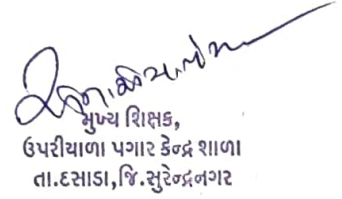 મુખ્ય શિક્ષક,
ઉપરીયાળા પગાર કેન્દ્ર શાળા
તા.દસાડા,જિ.સુરેન્દ્રનગર